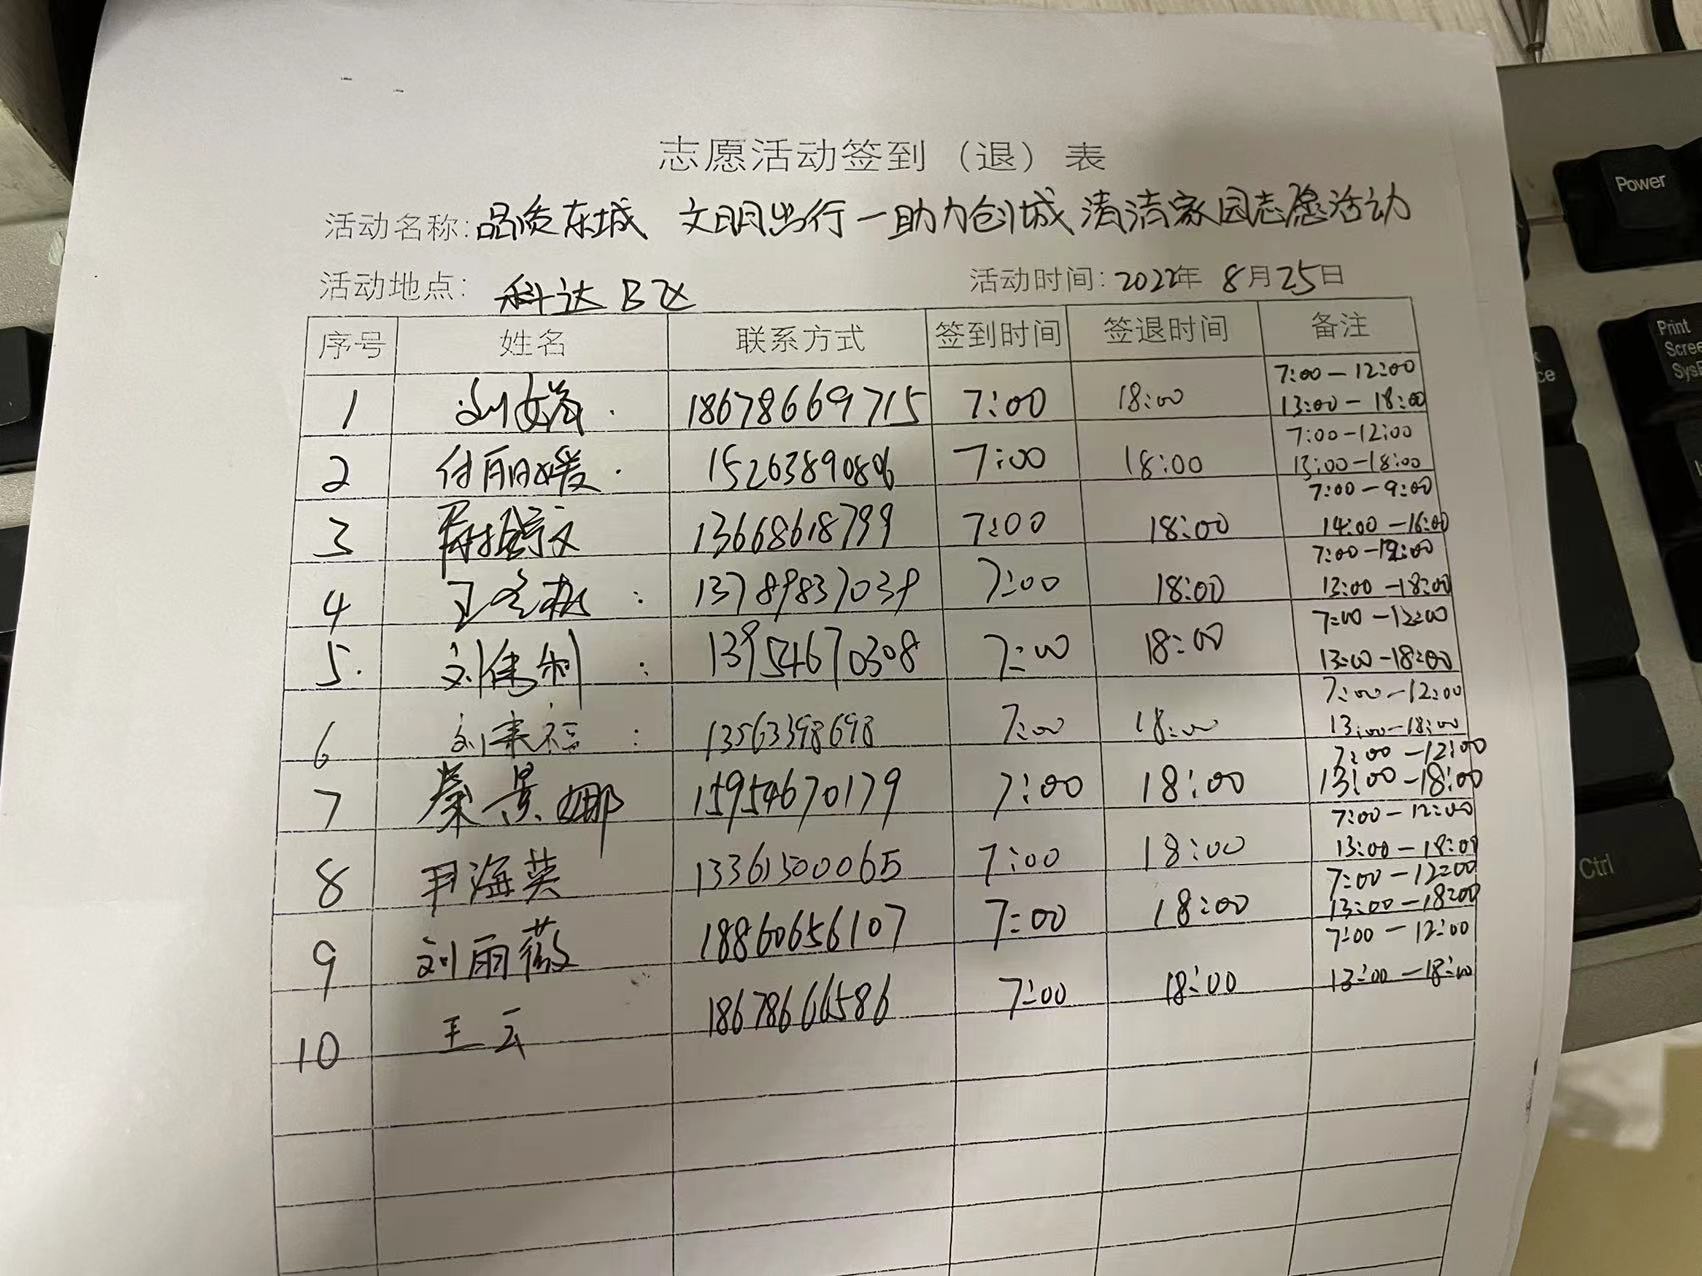 志愿活动签到（退）表
活动名称:品质东城 文明出行一助力创城清洁家园志愿活动
活动地点: 科达B区 活动时间:2022年 8月25日
序号 姓名 联系方式 签到时间 签退时间 备注
7:00-12:00
1 18678669715 7:00 18:00 13:00-18:00
7:00-12:00
2 付丽媛 15263890806 7:00 18:00 13:00-18:00
7:00-9:00
3 13668618799 7:00 18:00 14:00-16:00
7:00-12:00
4 13789837039 7:00 18:00 13:00-18:00
7:00-12:00
5. 刘伟利 13954670308 7:00 18:00 13:00-18:00
7:00-12:00
6 刘来福 13563398698 7:00 18:00 13:00-18:00
7:00-12:00
7 秦景娜 15954670179 7:00 18:00 13:00-18:00
7:00-12:00
8 尹海英 13361500065 7:00 18:00 13:00-18:00
7:00-12:00
9 刘雨薇 18860656107 7:00 18:00 13:00-18:00
7:00-12:00
10 王云 18678666586 7:00 18:00 13:00-18:00
Power
Print
Scree
Ctrl